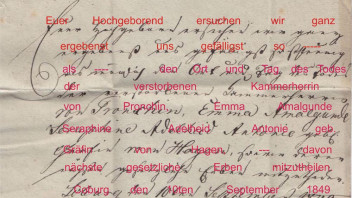 Euer Hochgeborend ersuchen wir ganz
ergebenst uns gefälligst so
als den Ort und Tag des Todes
der verstorbenen Kammerherrin
von Pronchin Emma Amalgunde
Seraphine Adelheid Antonie geb.
Gräfin vom Hagen, davon
nächste gesetzliche Erben mitzutheilen.
Coburg den 10ten September 1849